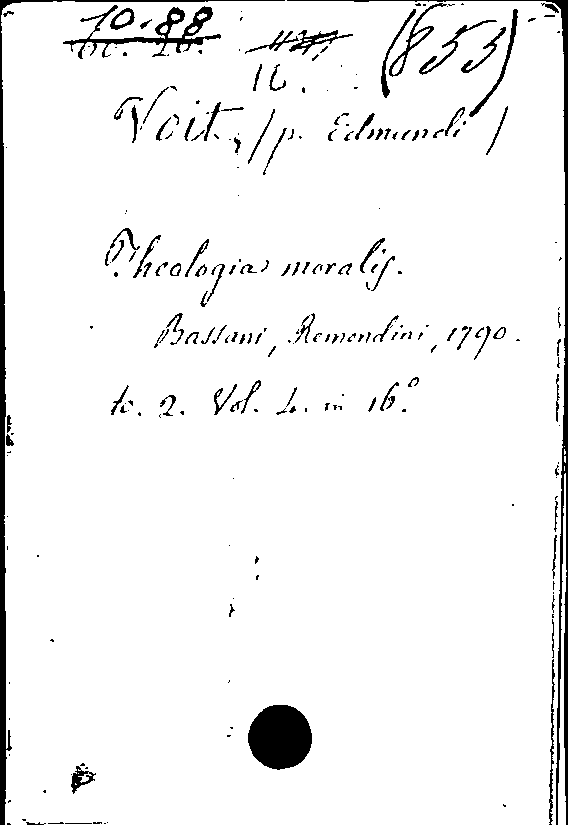 10.88
16. (853)
Voit, /p. Edmundi /
Theologia moralis.
Bassani, Remondini, 1790.
to. 2. Vol. 4. in 16.º